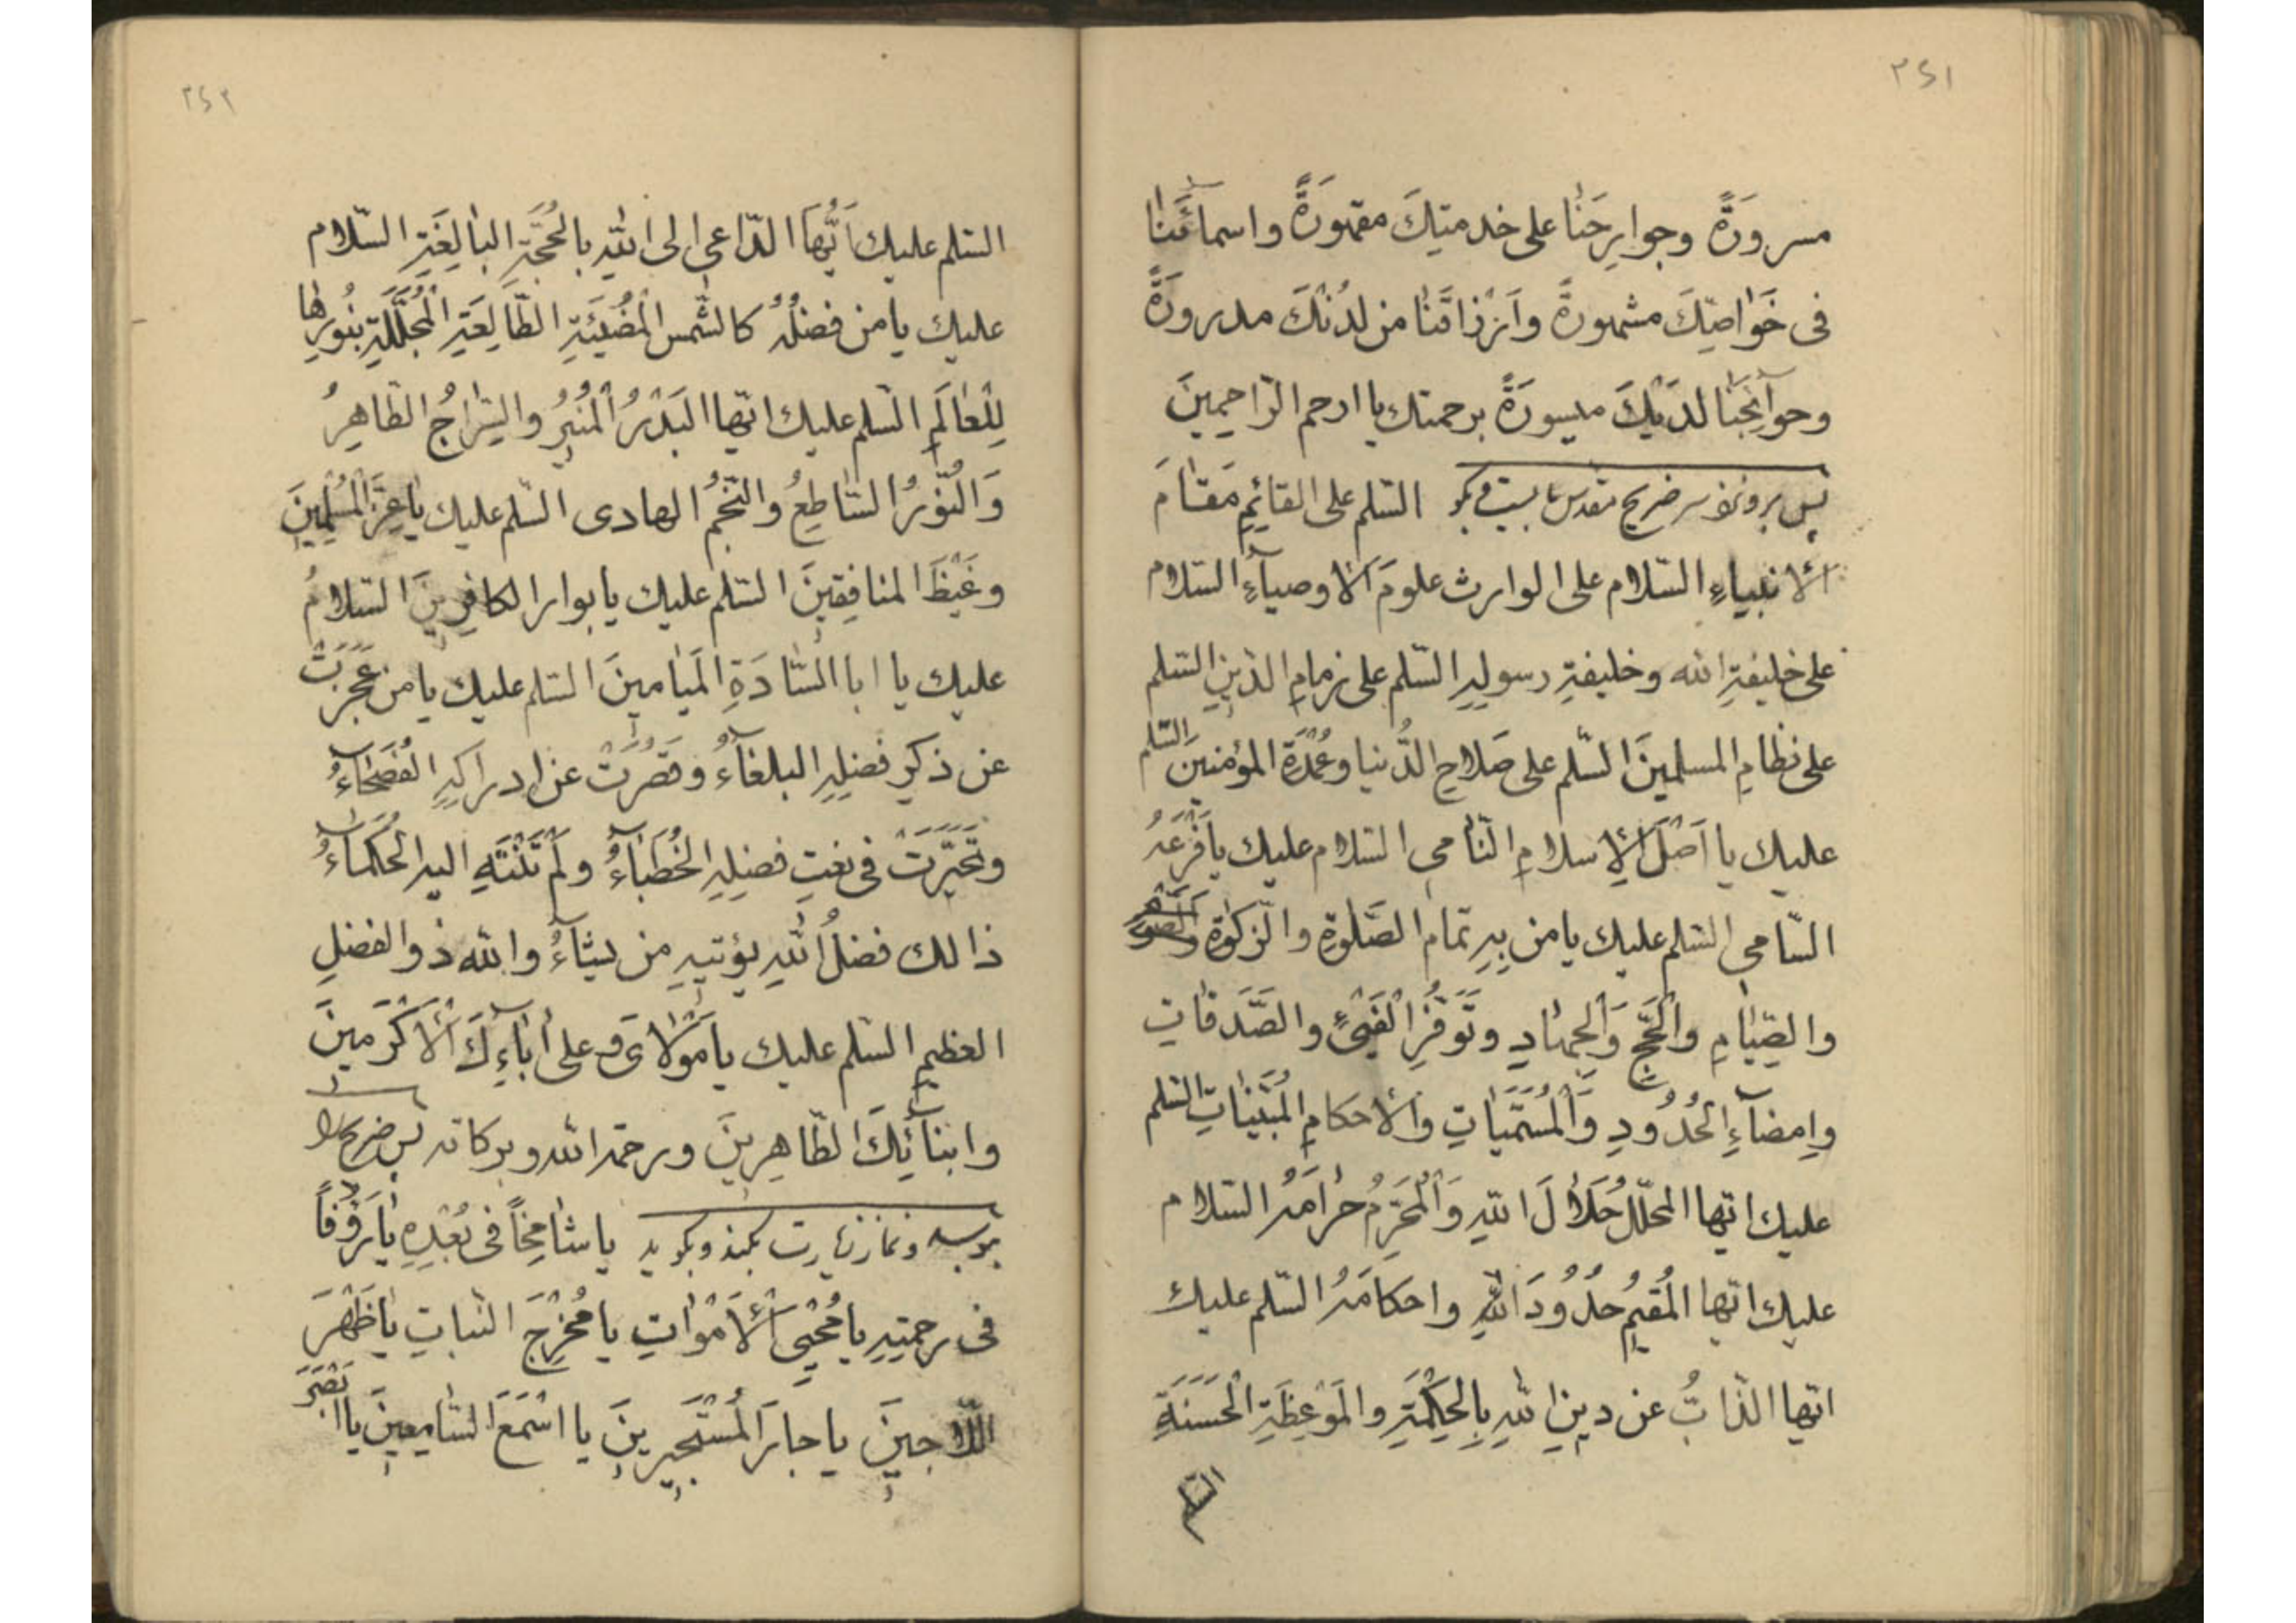 ٣٤١
مسرورَةً وجوارِحَنا على خدمتِكَ مقهورَةً واسمائَنا
فى خَواصِّكَ مشهورةً وَاَرْزاقَنا من لدُنْكَ مدرورَةً
وحوآئِجَنا لدَيْكَ ميسورَةً برحمتك يا ارحم الرّاحمينَ
پس برو نزد سر ضريح مقدس بايست وبكو السّلم على القائِمِ مَقامَ
الانبياءِ السّلام على الوارث علومَ الاوصيآءِ السّلام
على خليفةِ الله وخليفةِ رسولِهِ السّلم على زمامِ الدّينِ السّلم
على نظامِ المسلمينَ السّلم على صَلاحِ الدُّنيا وعُمْدَةِ المؤمنينَ السّلم
عليك يا اَصْلَ الاِسلامِ النّامى السّلام عليك يا فَرْعَهُ
السّامى السّلم عليك يا من بِهِ تمام الصَّلوةِ والزّكوٰةِ
والصِّيامِ والْحَجِّ وَالْجهادِ وتَوَفُّرِ الْفَيْئِ والصَّدَقاتِ
وإمضآءِ الْحُدُودِ وَالْمُسَمَّياتِ والاحكامِ الْمُبَيَّناتِ السّلم
عليك ايّها المحلّل حَلالَ اللهِ وَالْمُحَرِّمُ حرامَهُ السّلام
عليك ايّها المُقيمُ حدُودَ اللهِ واحكامَهُ السّلم عليك
ايّها الذّابُّ عن دينِ اللهِ بِالْحِكْمَةِ والمَوْعِظَةِ الْحَسَنَةِ
السّلم
٣٤٢
السّلم عليك اَيُّهَا الدّاعى الى اللهِ بالْحُجَّةِ البالِغَةِ السّلام
عليك يا من فضلُهُ كالشّمس الْمُضيئَةِ الطّالِعَةِ الْمُجَلِّلَةِ بنُورِها
لِلْعالَمِ السّلم عليك ايّها البَدْرُ الْمُنيرُ والسِّراجُ الظّاهِرُ
وَالنُّورُ السّاطِعُ والنّجْمُ الهادى السّلم عليك يا عِزَّ الْمُسْلِمينَ
وغَيْظَ المنافِقينَ السّلم عليك يا بوار الكافِرينَ السّلامُ
عليك يا ابا السّادَةِ المَيامينَ السّلم عليك يا من عَجَزَتْ
عن ذكرِ فضلِهِ البلغآءُ وقَصُرَتْ عن ادراكِهِ الفُصَحآءُ
وتَحَيَّرَتْ فى نعتِ فضلِهِ الخُطَبآءُ ولَمْ تَنْتَهِ اليه الحُكَمآءُ
ذالك فضلُ اللهِ يؤتيهِ من يشآءُ والله ذوالفضلِ
العظيمِ السّلم عليك يا مَوْلاىَ وعلى اٰبآءِكَ الاَكْرَمينَ
وابنآئِكَ الطّاهِرينَ ورحمة الله وبركاته پس ضريح را
ببوسد ونماز زيارت بكند وبكويد يا شامِخاً فى بُعْدِهِ يا رَؤُفاً
فى رحمتِهِ يا مُحْيِىَ الاَمْواتِ يا مُخْرِجَ النّباتِ يا ظَهْرَ
اللّاجينَ يا جارَ الْمُسْتَجيرينَ يا اسْمَعَ السّامِعينَ يا ابْصَرَ